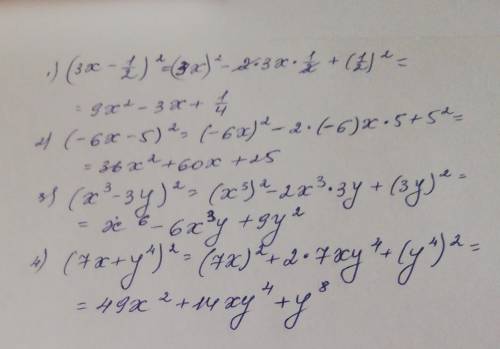 1) (3x - 1/2)² = (3x)² - 2·3x·1/2 + (1/2)² =
= 9x² - 3x + 1/4
2) (-6x - 5)² = (-6x)² - 2·(-6)x·5 + 5² =
= 36x² + 60x + 25
3) (x³ - 3y)² = (x³)² - 2x³·3y + (3y)² =
= x⁶ - 6x³y + 9y²
4) (7x + y⁴)² = (7x)² + 2·7xy⁴ + (y⁴)² =
= 49x² + 14xy⁴ + y⁸